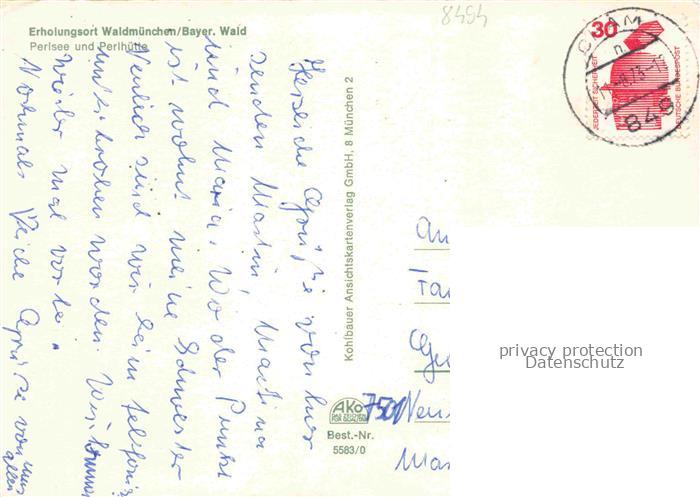 8494
Erholungsort Waldmünchen/Bayer. Wald
Perlsee und Perlhütte
Herzliche Grüße von hier
senden Martin, Martina
und Maria. Wo der Punkt
ist wohnt meine Schwester
Neulich sind wir beim telefonie
unterbrochen worden. Wir kommen
wieder mal vorbei.
Nochmals Viele Grüße von uns
allen
Kohlbauer Ansichtskartenverlag GmbH, 8 München 2
AKo
Best.-Nr.
5583/0
CHAM
849
30
JEDERZEIT SICHERHEIT
DEUTSCHE BUNDESPOST
An
Fa
7501 Neu
privacy protection
Datenschutz